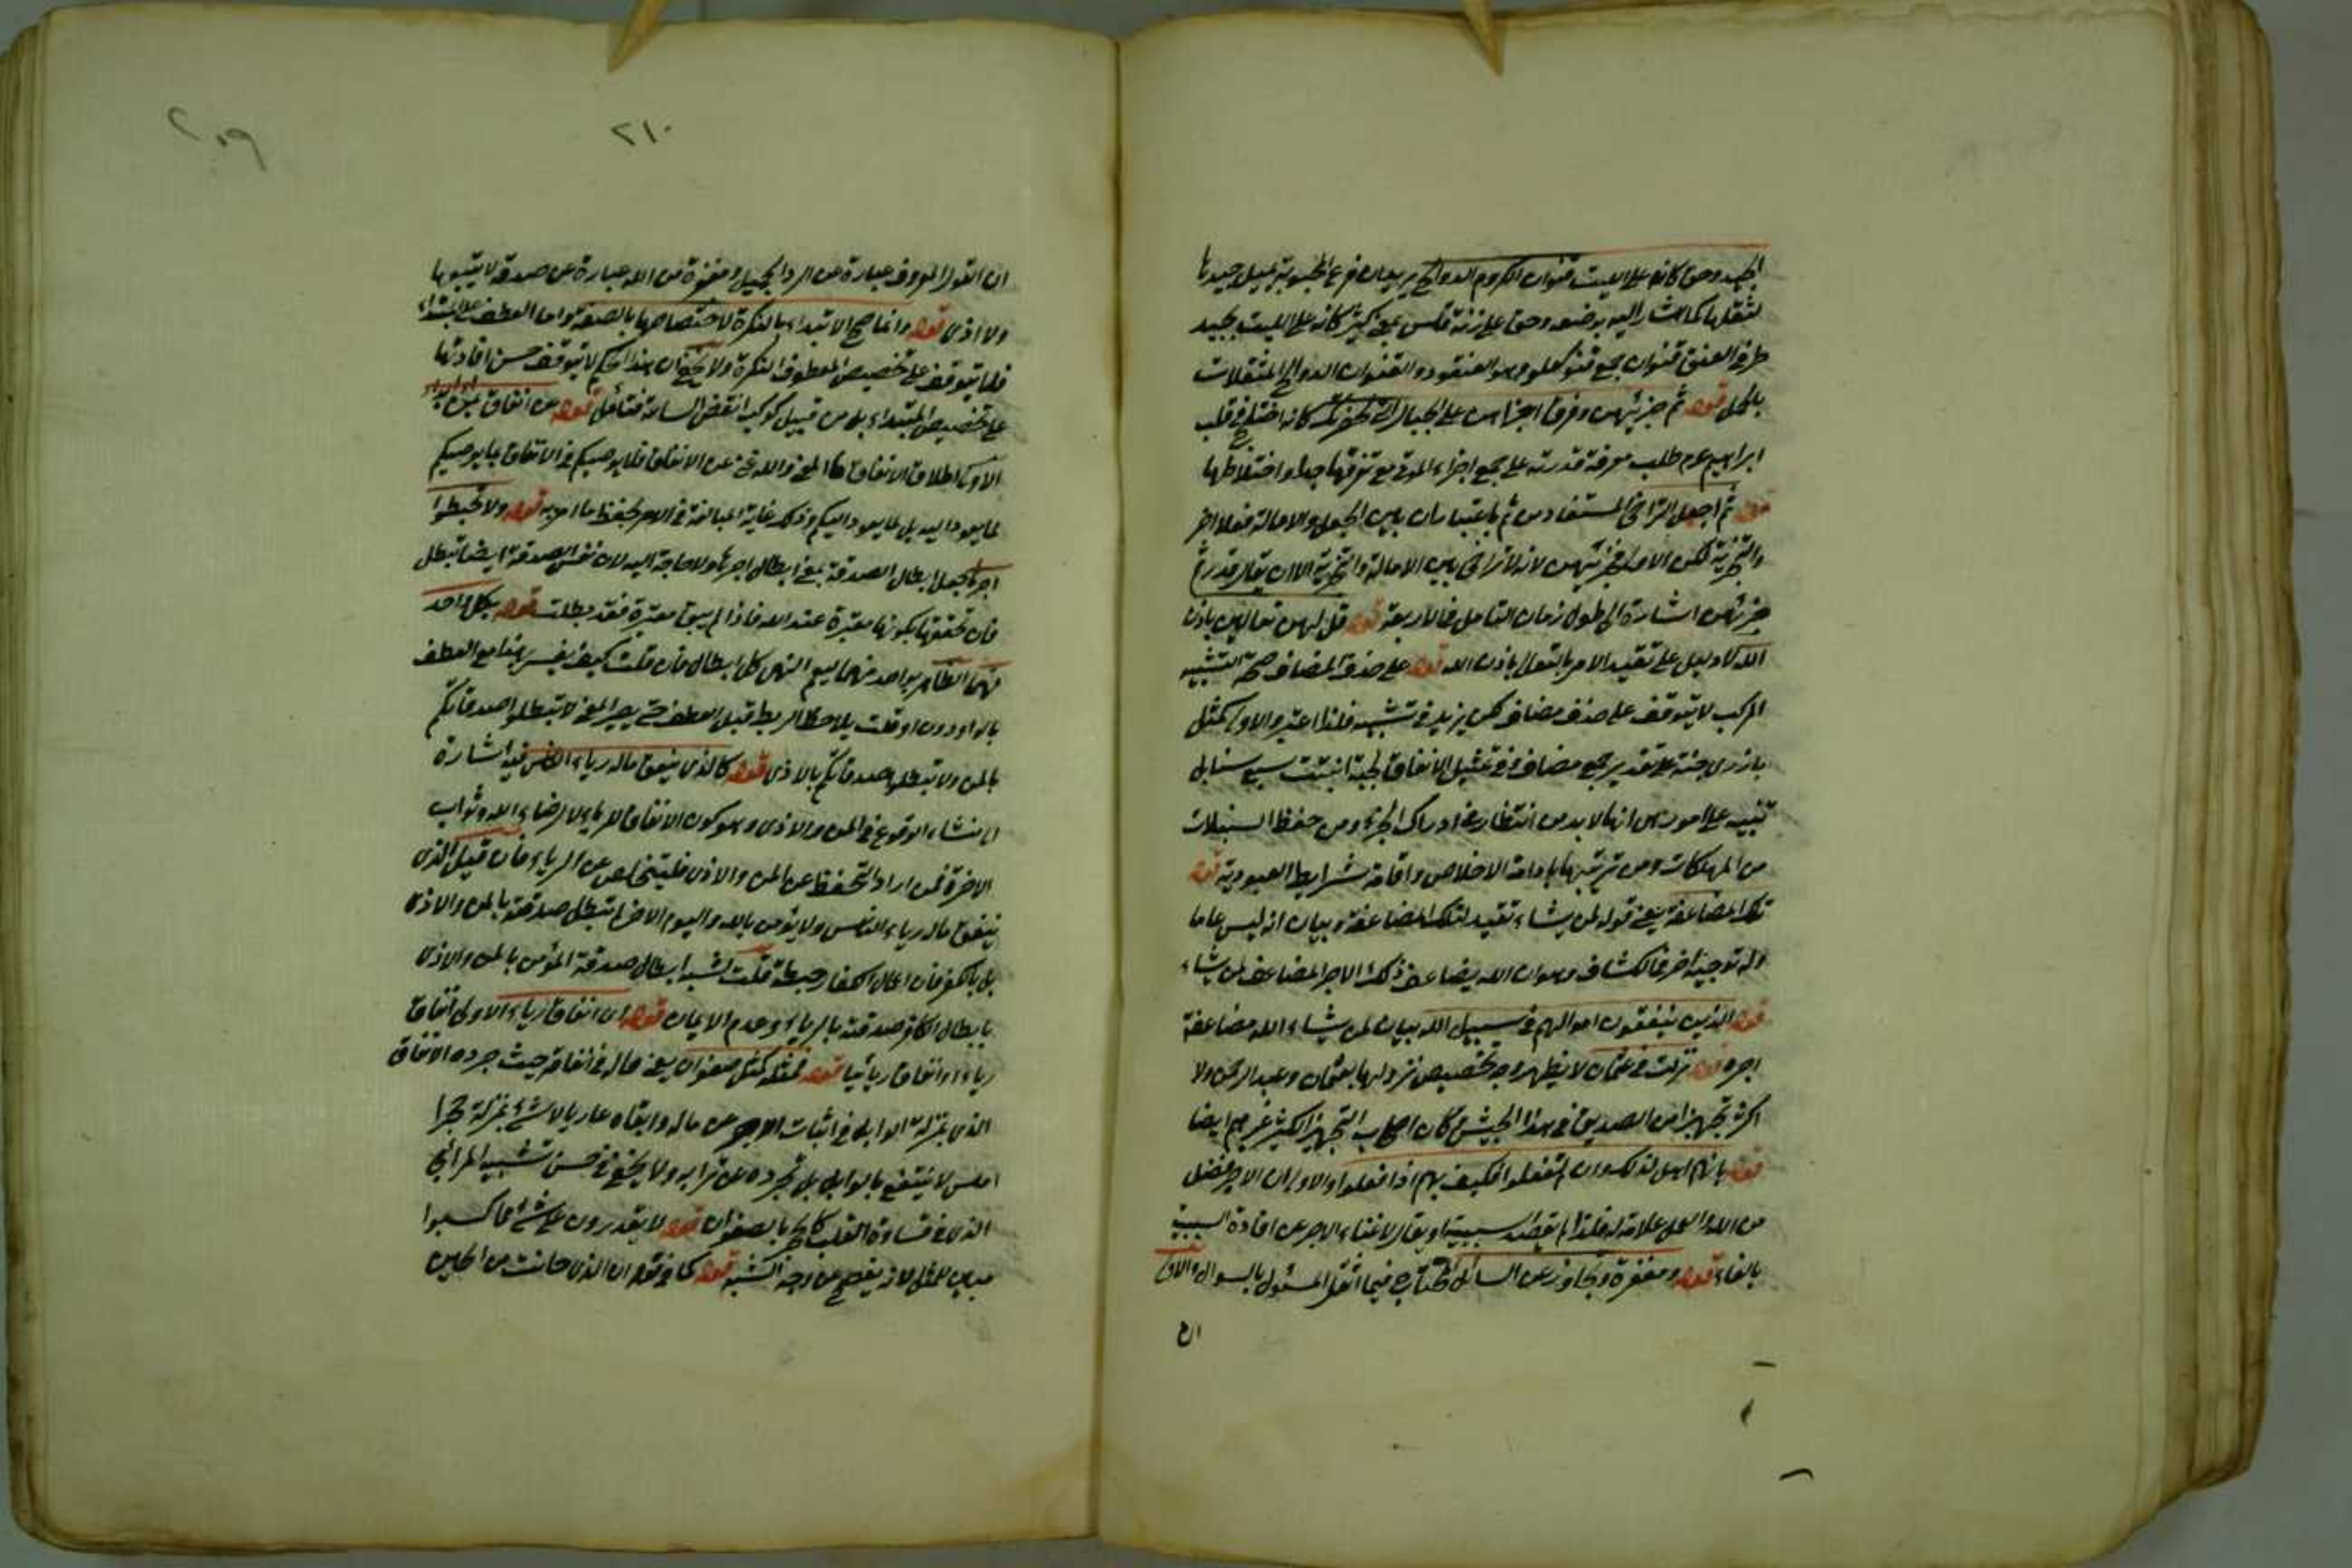 الجيد وحق كانه على الليت قنوان الكروم الدوالح يريد ان فرع المحبوبة تميل جيدها
لثقلها كما اشار اليه بوضعه وحق على زنة فلس بمعنى كثير كانه على الليت بجيد
طرفي العنق قنوان جمع قنو كعلو وهو العنقود والقنوان الدوالح المثقلات
بالحمل قوله ثم جزئهن وفرق اجزاءهن على الجبال التي بحضرتك كانه اختلج في قلب
ابراهيم عم طلب معرفة قدرته على جمع اجزاء الموتى مع تفرقها جدا واختلاطها
قوله ثم اجعل التراخي المستفاد من ثم باعتبار ان بين الجعل والامالة فعلا اخر
والتجزئة لكن الاولى فجزئهن لانه لا تراخي بين الامالة والتجزئة الا ان يقال قدر ثم
جزئهن اشارة الى طول زمان التامل في الاربعة قوله قل لهن تعالين باذن
الله لا دليل على تقييد الامر بالتعالى باذن الله قوله على حذف المضاف صحة التشبيه
المركب لا يتوقف على حذف مضاف لكن يزيد في تشبيه فلذا اعتبر والاولى كمثل
باذر حبة على تقدير جمع مضاف وفي تمثيل الانفاق بحبة انبتت سبع سنابل
تنبيه على امور من انها لا بد من انتظار عند ادراك الجزاء ومن حفظ السنبلات
من المهلكات ومن تربيتها بادامة الاخلاص واقامة شرايط العبودية قوله
تلك المضاعفة يعني قوله لمن يشاء تقييد لتلك المضاعفة وبيان انه ليس عاما
وله توجيه اخر في الكشاف وهو ان الله يضاعف ذلك الاجر المضاعف لمن يشاء
قوله الذين ينفقون اموالهم في سبيل الله بيان لمن يشاء الله مضاعفة
اجره قوله نزلت في عثمان لا يظهر وجه تخصيص نزولها بعثمان وعبد الرحمن ولا
اكثر تجهيزا من الصديق في هذا الجيش وكان اصحاب التجهيز الكثير غيرهم ايضا
قوله بانهم اهل لذلك وان لم يفعلوا فكيف بهم اذا فعلوا والاولى ان الاجر بفضل
من الله والعمل علامة له فلذا لم يقصد سببية او يقال لاغناء الاجر عن افادة السببية
بالفاء قوله ومغفرة وتجاوز عن السائل الحاحه فيما اثقل المسئول بالسؤال والاولى
ان
٢٠٩
٢١٠
ان القول المعروف عبارة عن الرد الجميل ومغفرة من الله عبارة عن صدقة لا يتبعها
ولا اذى قوله وانما صح الابتداء بالنكرة لاختصاصها بالصفة واما العطف على المبتداء
فلا يتوقف على تخصيص المعطوف النكرة ولا يخفى ان هذا الحكم لا يتوقف حسن افادتها
على تخصيص المبتداء بل من قبيل كوكب انقض الساعة فتأمل قوله عن انفاق بمن وايذاء
الاولى اطلاق الانفاق كما المعنى والله غني عن الانفاق فلا يوصيكم في الانفاق بما يوصيكم
لما يعود اليه بل لما يعود اليكم وذلك غاية المبالغة في الامر بحفظ ما امر به قوله ولا تحبطوا
اجرها جعل ابطال الصدقة بمعنى ابطال اجرها ولا حاجة اليه لان نفس الصدقة ايضا تبطل
فان تحققها بكونها معتبرة عند الله فاذا لم يبق معتبرة فقد بطلت قوله بكل واحد
منهما الظاهر بواحد منهما ليعم النهي كل ابطال فان قلت كيف يفسر بهذا مع العطف
بالواو دون او قلت يلاحظ الربط قبل العطف حتى يصير المعنى لا تبطلوا صدقاتكم
بالمن ولا تبطلوا صدقاتكم بالاذى قوله كالذي ينفق ماله رياء الناس فيه اشارة
الى منشاء الوقوع في المن والاذى وهو كون الانفاق للرياء لا لرضاء الله وثواب
الاخرة فمن اراد التحفظ عن المن والاذى فليتخلص عن الرياء فان قيل الذي
ينفق ماله رياء الناس ولا يؤمن بالله واليوم الاخر لم تبطل صدقته بالمن والاذى
بل بالكفر فان اعمال الكفار حبطة قلت شبه ابطال صدقة المؤمن بالمن والاذى
بابطال الكافر صدقته بالرياء وعدم الايمان قوله اى انفاق رياء الاولى انفاق
رياء او انفاقا ريائيا قوله فمثله كمثل صفوان يعني ماله في انفاقه حيث جرده الانفاق
الذي بمنزلة الوابل في اثبات الاجر عن ماله وابقاه عاريا لا شئ بمنزلة حجر
املس لا ينتفع بالوابل بل تجرده عن ترابه ولا يخفى حسن تشبيه المرائي
الذي في قساوة القلب كالحجر بالصفوان قوله لا يقدرون على شئ مما كسبوا
مبين للمثل لانه يفصح عن وجه الشبه قوله كما في قوله ان الذي حانت من الحين